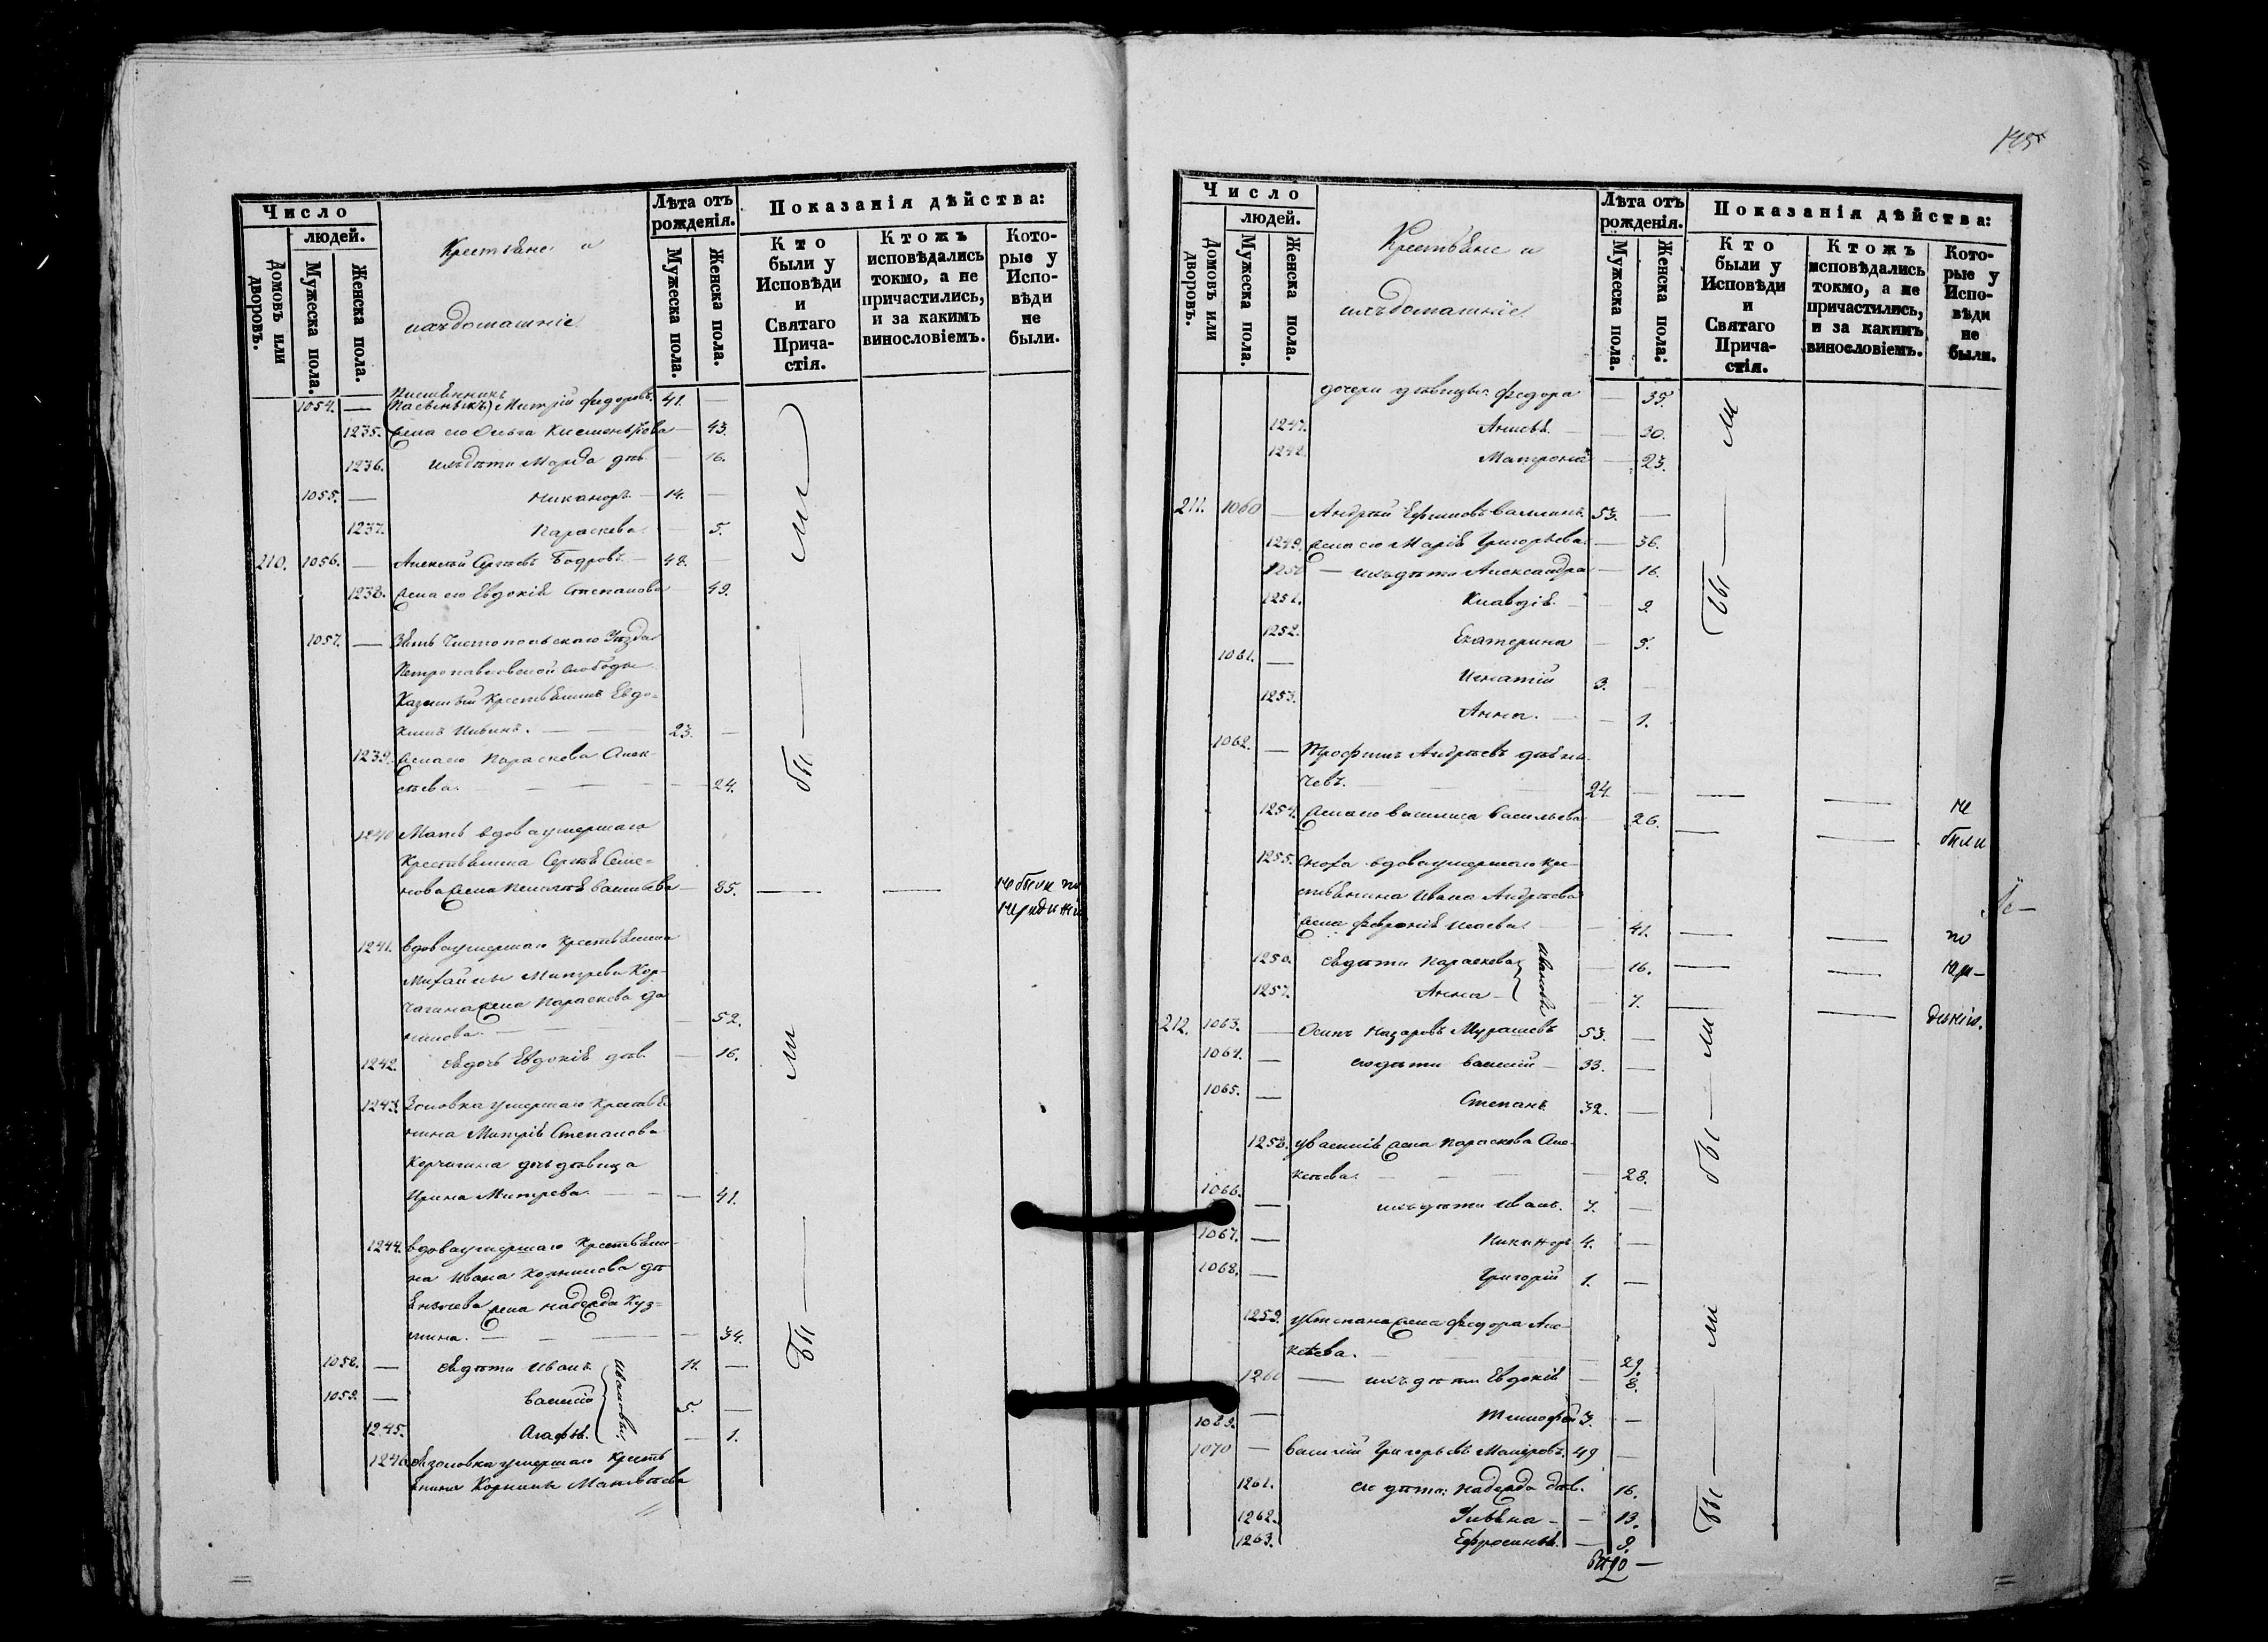 Число
людей.
Домовъ или дворовъ.
Мужеска пола.
Женска пола.
Крестьяне и
ихъ домашніе.
Лѣта отъ рожденія.
Мужеска пола.
Женска пола.
Показанія дѣйства:
Кто были у Исповѣди и Святаго Прича-стія.
Ктожъ исповѣдались токмо, а не причастились, и за какимъ винословіемъ.
Кото-рые у Испо-вѣди не были.
1054. — Митрій Федоровъ 41. —
1235. жена его Ольга — 43.
1236. ихъ дѣти Марѳа дѣв. — 16.
1055. — Никаноръ — 14. —
1237. Параскева — 5.
210. 1056. — Алексѣй Сергѣевъ Бодровъ — 48. —
1238. жена его Евдокія Степанова 49.
1057. — Зять Чистопольскаго Уѣзда
Петропавловской слободы
Казенный крестьянинъ Евдо-
кимъ — 23. —
1239. жена его Параскева Алек-
сѣева. — 24.
1240 Мать вдова умершаго
крестьянина Сергѣя Семе-
нова жена Васильева — 85. — — не были по
нерадѣнію
1241. вдова умершаго крестьянина
Михайлы Митрева Кор-
чагина жена Параскева Да
нилова. — 52.
1242. ея дочь Евдокія дѣв. — 16.
1243. Золовка умершаго крестья
нина Митрія Степанова
Корчагина дочь дѣвица
Ирина Митрева. — 41.
1244. вдова умершаго крестьяни-
на Ивана Корнилова дь
яначева жена Надежда Куз=
мина. — 34.
1058. — ея дѣти Иванъ Ивановы 11. —
1059. — Василій 5. —
1245. Агафья — 1.
1246. ея золовка умершаго кресть
янина Корнилы Матвѣева
Бы — ли
Бы — ли
145
Число
людей.
Домовъ или дворовъ.
Мужеска пола.
Женска пола.
Крестьяне и
ихъ домашніе.
Лѣта отъ рожденія.
Мужеска пола.
Женска пола.
Показанія дѣйства:
Кто были у Исповѣди и Святаго Прича-стія.
Ктожъ исповѣдались токмо, а не причастились, и за какимъ винословіемъ.
Кото-рые у Испо-вѣди не были.
дочери дѣвицы Федора — 35.
1247. Анисья — 30.
1248. Матрона — 23.
211. 1060 — Андрей Ефимовъ 53. —
1249. жена его Марія Григорьева — 36.
1250 — ихъ дѣти Александра — 16.
1251. Клавдія — 9.
1252. Екатерина — 5.
1061. — Игнатій 3. —
1253. Анна. — 1.
1062. — Трофимъ Андреевъ дьяна
чевъ. 24. — — — не
1254. жена его Василиса Васильева — 26. — — были
1255. сноха вдова умершаго кре-
стьянина Ивана Андреева
жена Февронія Исаева — 41. — — по
1256. ея дѣти Параскева Ивановы — 16. — — нера-
1257. Анна — 7. — — дѣнію.
212. 1063. — Осипъ Назаровъ Мурашевъ 53. —
1064. — его дѣти Василій — 33. —
1065. — Степанъ 32. —
1258. у Василія жена Параскева Але-
ксѣева. — 28.
1066. — ихъ дѣти Иванъ. 7. —
1067. — Никаноръ 4. —
1068. — Григорій 1. —
1259. у Степана жена Федора Але-
ксѣева. — 29.
1260 — ихъ дѣти Евдокія — 8.
1069. — Тимофей 3. —
1070 — Василій Григорьевъ 49 —
1261. его дѣти: Надежда дѣв. 16.
1262. Ульяна — 13.
1263. Ефросинья — 9.
Бы — ли
Бы — ли
Бы — ли